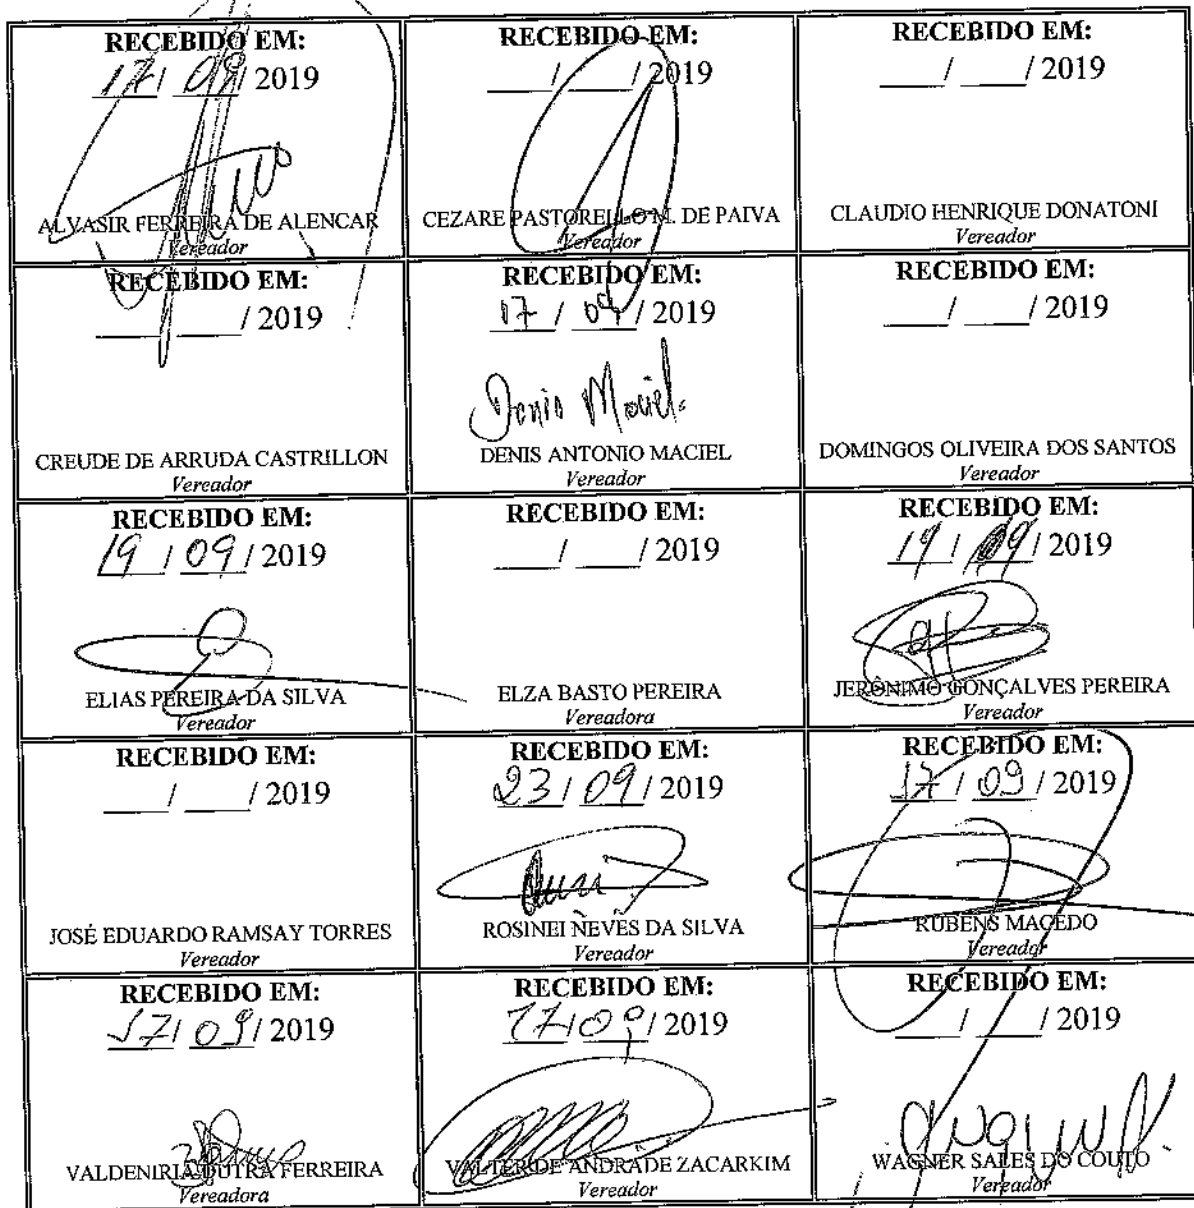 RECEBIDO EM:
17 / 09 / 2019
ALVASIR FERREIRA DE ALENCAR
Vereador
RECEBIDO EM:
___/ ___/ 2019
CEZARE PASTORELLO M. DE PAIVA
Vereador
RECEBIDO EM:
___/ ___/ 2019
CLAUDIO HENRIQUE DONATONI
Vereador
RECEBIDO EM:
___/ ___/ 2019
CREUDE DE ARRUDA CASTRILLON
Vereador
RECEBIDO EM:
17 / 09 / 2019
Denis Maciel
DENIS ANTONIO MACIEL
Vereador
RECEBIDO EM:
___/ ___/ 2019
DOMINGOS OLIVEIRA DOS SANTOS
Vereador
RECEBIDO EM:
19 / 09 / 2019
ELIAS PEREIRA DA SILVA
Vereador
RECEBIDO EM:
___/ ___/ 2019
ELZA BASTO PEREIRA
Vereadora
RECEBIDO EM:
19 / 09 / 2019
JERÔNIMO GONÇALVES PEREIRA
Vereador
RECEBIDO EM:
___/ ___/ 2019
JOSÉ EDUARDO RAMSAY TORRES
Vereador
RECEBIDO EM:
23 / 09 / 2019
ROSINEI NEVES DA SILVA
Vereador
RECEBIDO EM:
17 / 09 / 2019
RUBENS MACEDO
Vereador
RECEBIDO EM:
17 / 09 / 2019
VALDENIRIA DUTRA FERREIRA
Vereadora
RECEBIDO EM:
17 / 09 / 2019
VALTER DE ANDRADE ZACARKIM
Vereador
RECEBIDO EM:
___/ ___/ 2019
WAGNER SALES DO COUTO
Vereador